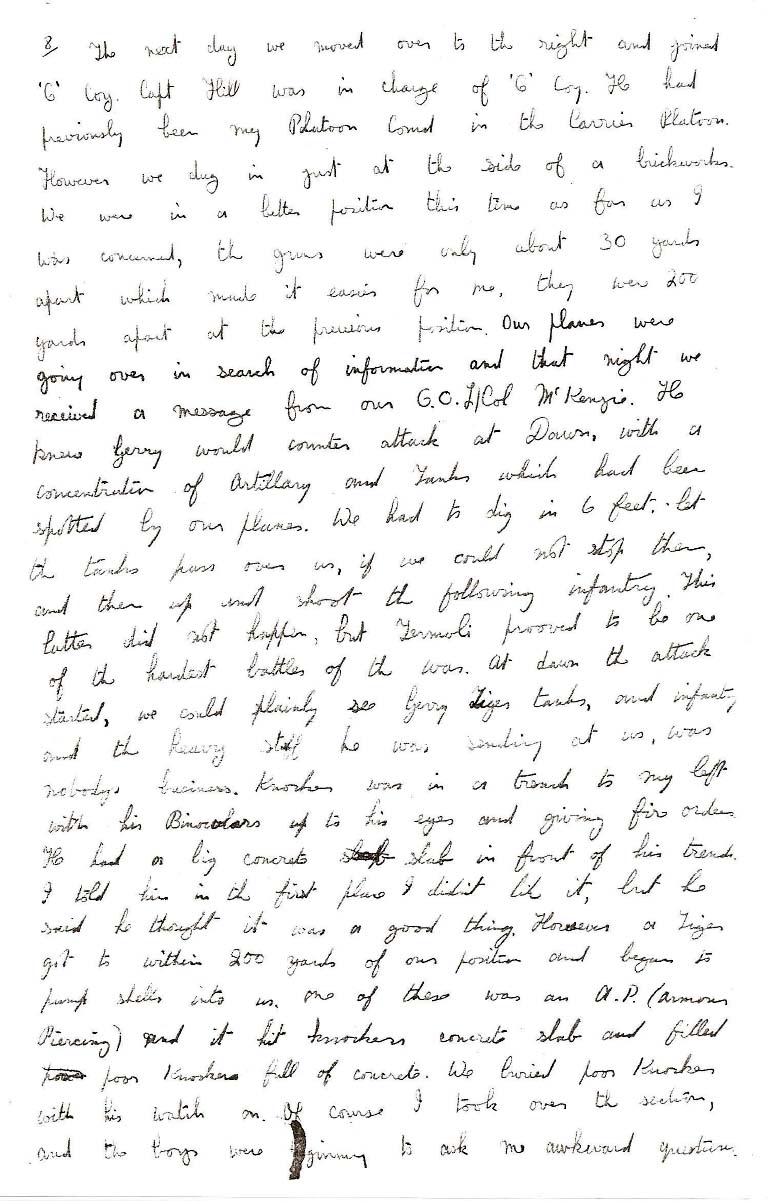 8/ The next day we moved over to the right and joined
'C' Coy. Capt Hill was in charge of 'C' Coy. He had
previously been my Platoon Comd in the Carrier Platoon.
However we dug in just at the side of a brickworks.
We were in a better position this time as far as I
was concerned, the guns were only about 30 yards
apart which made it easier for me, they were 200
yards apart at the previous position. Our planes were
going over in search of information and that night we
received a message from our C.O. L/Col McKenzie. He
knew Gerry would counter attack at Dawn, with a
concentration of Artillary and Tanks which had been
spotted by our planes. We had to dig in 6 feet, let
the tanks pass over us, if we could not stop them,
and then up and shoot the following infantry. This
latter did not happen, but Termoli prooved to be one
of the hardest battles of the war. At dawn the attack
started, we could plainly see Gerry Tiger tanks, and infantry
and the heavy stuff he was sending at us, was
nobodys business. Knocker was in a trench to my left
with his Binoculars up to his eyes and giving fire orders
He had a big concrete slab in front of his trench.
I told him in the first place I didn't like it, but he
said he thought it was a good thing. However a Tiger
got to within 200 yards of our position and began to
pump shells into us. One of these was an A.P. (Armour
Piercing) and it hit Knockers concrete slab and filled
poor Knocker full of concrete. We buried poor Knocker
with his watch on. Of course I took over the section,
and the boys were ginning to ask me awkward question.